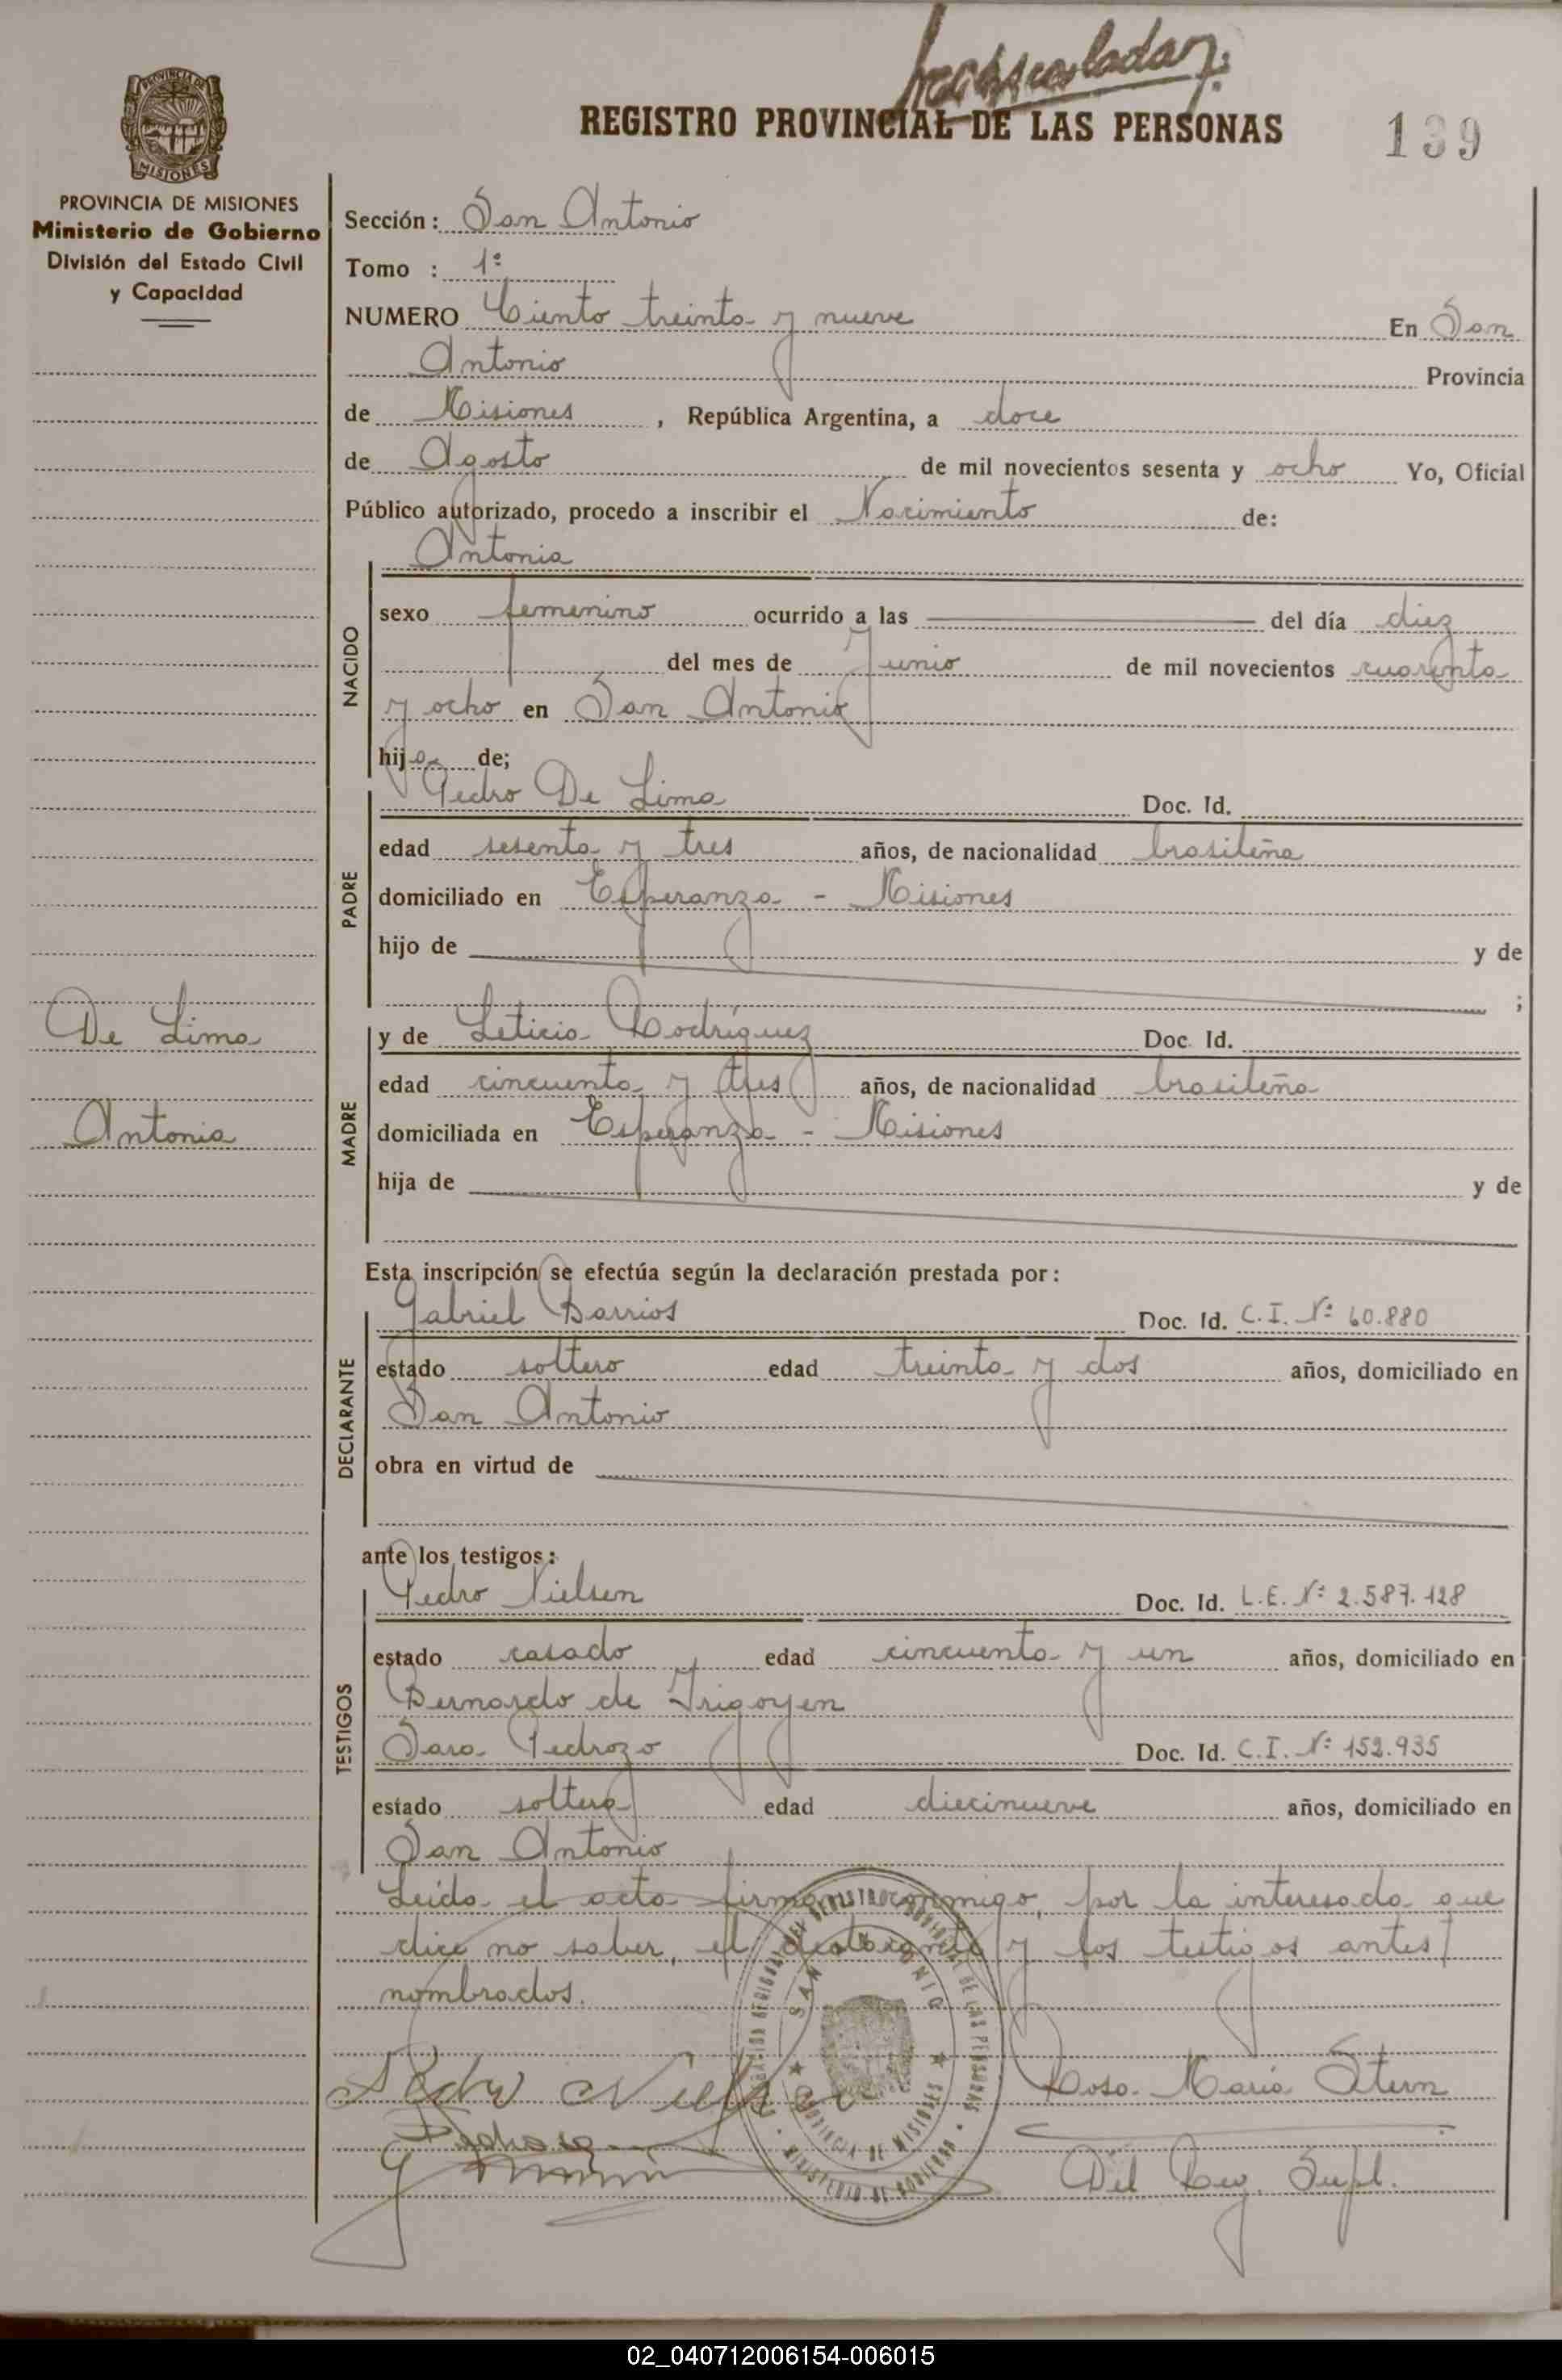 REGISTRO PROVINCIAL DE LAS PERSONAS
139
PROVINCIA DE MISIONES
MISIONES
PROVINCIA DE MISIONES
Ministerio de Gobierno
División del Estado Civil
y Capacidad
De Lima
Antonia
Sección: San Antonio
Tomo : 1º
NUMERO Ciento treinta y nueve En San
Antonio Provincia
de Misiones, República Argentina, a doce
de Agosto de mil novecientos sesenta y ocho Yo, Oficial
Público autorizado, procedo a inscribir el Nacimiento de:
NACIDO
Antonia
sexo femenino ocurrido a las del día diez
del mes de Junio de mil novecientos cuarenta
y ocho en San Antonio
hija de;
PADRE
Pedro De Lima Doc. Id.
edad sesenta y tres años, de nacionalidad brasileña
domiciliado en Esperanza - Misiones
hijo de y de
;
MADRE
y de Leticia Rodríguez Doc. Id.
edad cincuenta y tres años, de nacionalidad brasileña
domiciliada en Esperanza - Misiones
hija de y de
Esta inscripción se efectúa según la declaración prestada por:
DECLARANTE
Gabriel Barrios Doc. Id. C.I. Nº 60.880
estado soltero edad treinta y dos años, domiciliado en
San Antonio
obra en virtud de
ante los testigos:
TESTIGOS
Pedro Nielsen Doc. Id. L.E. Nº 2.587.128
estado casado edad cincuenta y un años, domiciliado en
Bernardo de Irigoyen
Sara Pedrozo Doc. Id. C.I. Nº 152.935
estado soltera edad diecinueve años, domiciliado en
San Antonio
Leída el acta firman conmigo, por la interesada que
dice no saber, el declarante y los testigos antes
nombrados.
SAN ANTONIO
PROVINCIA DE MISIONES
MINISTERIO DE GOBIERNO
Pedro Nielsen
Rosa María Stern
Del Reg. Supl.
02_040712006154-006015